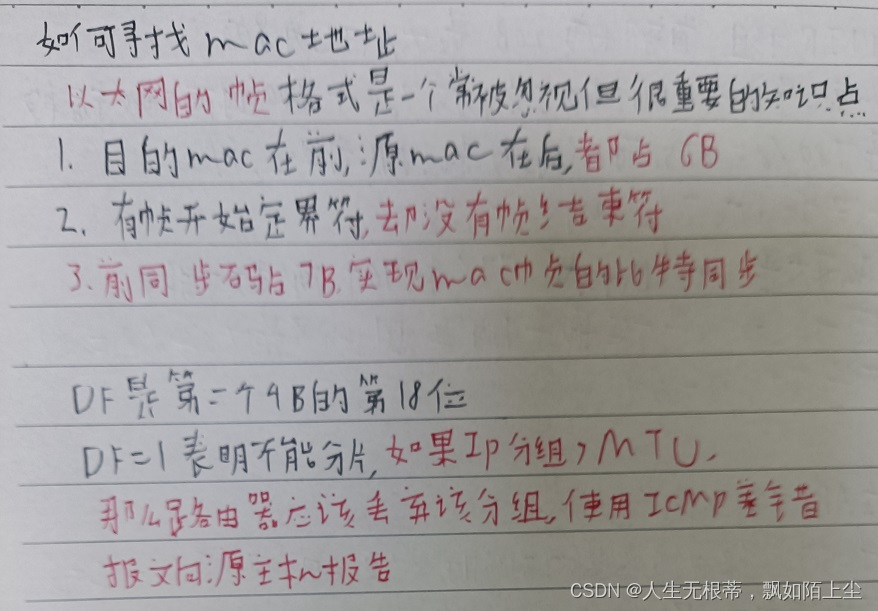 如何寻找mac地址
以太网的帧格式是一个常被忽视但很重要的知识点
1. 目的mac在前,源mac在后,都占6B
2. 有帧开始定界符,却没有帧结束符
3. 前同步码占7B,实现mac帧的比特同步
DF是第二个4B的第18位
DF=1表明不能分片,如果IP分组>MTU,
那么路由器应该丢弃该分组,使用ICMP差错
报文向源主机报告
CSDN @人生无根蒂，飘如陌上尘